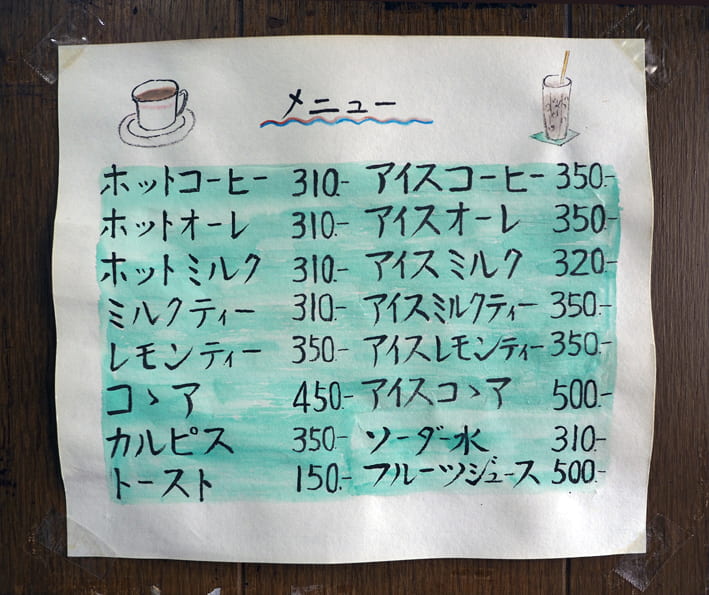 メニュー
ホットコーヒー 310.- アイスコーヒー 350.-
ホットオーレ 310.- アイスオーレ 350.-
ホットミルク 310.- アイスミルク 320.-
ミルクティー 310.- アイスミルクティー 350.-
レモンティー 350.- アイスレモンティー 350.-
コヽア 450.- アイスコヽア 500.-
カルピス 350.- ソーダー水 310.-
トースト 150.- フルーツジュース 500.-